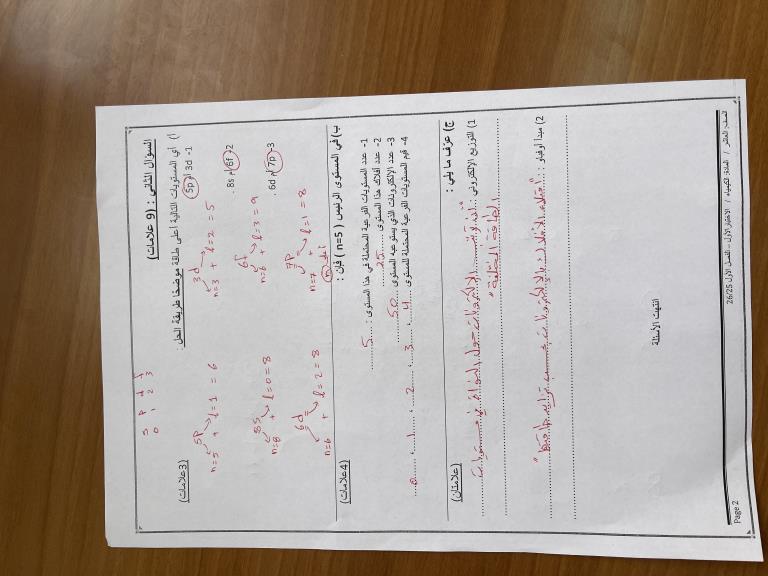 السؤال الثاني : (9 علامات)
أ) أي المستويات التالية أعلى طاقة موضحًا طريقة الحل : (3 علامات)
s p d f
0 1 2 3
1- 3d أم 5p
3d
n=3 + l=2 = 5
5p
n=5 + l=1 = 6
2- 6f أم 8s .
6f
n=6 + l=3 = 9
8s
n=8 + l=0 = 8
3- 7p أم 6d .
7p
n=7 + l=1 = 8
أعلى n
6d
n=6 + l=2 = 8
ب) في المستوى الرئيس (n=5) فإن : (4 علامات)
1- عدد المستويات الفرعية المحتملة في هذا المستوى : 5
2- عدد أفلاك هذا المستوى 25
3- عدد الإلكترونات الذي يستوعبه المستوى 50
4- قيم المستويات الفرعية المحتملة للمستوى 4 ، 3 ، 2 ، 1 ، 0
ج) عرّف ما يلي : (علامتان)
1) التوزيع الإلكتروني : "توزيع الإلكترونات حول النواة في مستويات
الطاقة المختلفة"
2) مبدأ أوفباو : "امتلاء الأفلاك بالإلكترونات حسب تزايد طاقتها"
انتهت الأسئلة
الصف: العاشر / المادة: الكيمياء / الاختبار الأول – الفصل الأول 26/25
Page 2